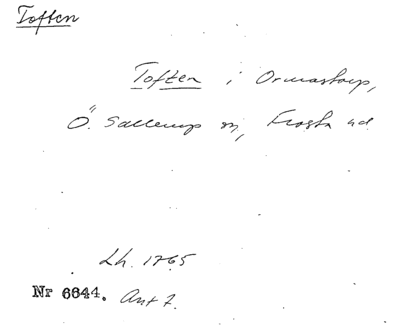 Toften
Toften i Ormastorp,
Ö. Sallerup sn, Frosta hd
Lh. 1765
Nr 6644. Ant 7.